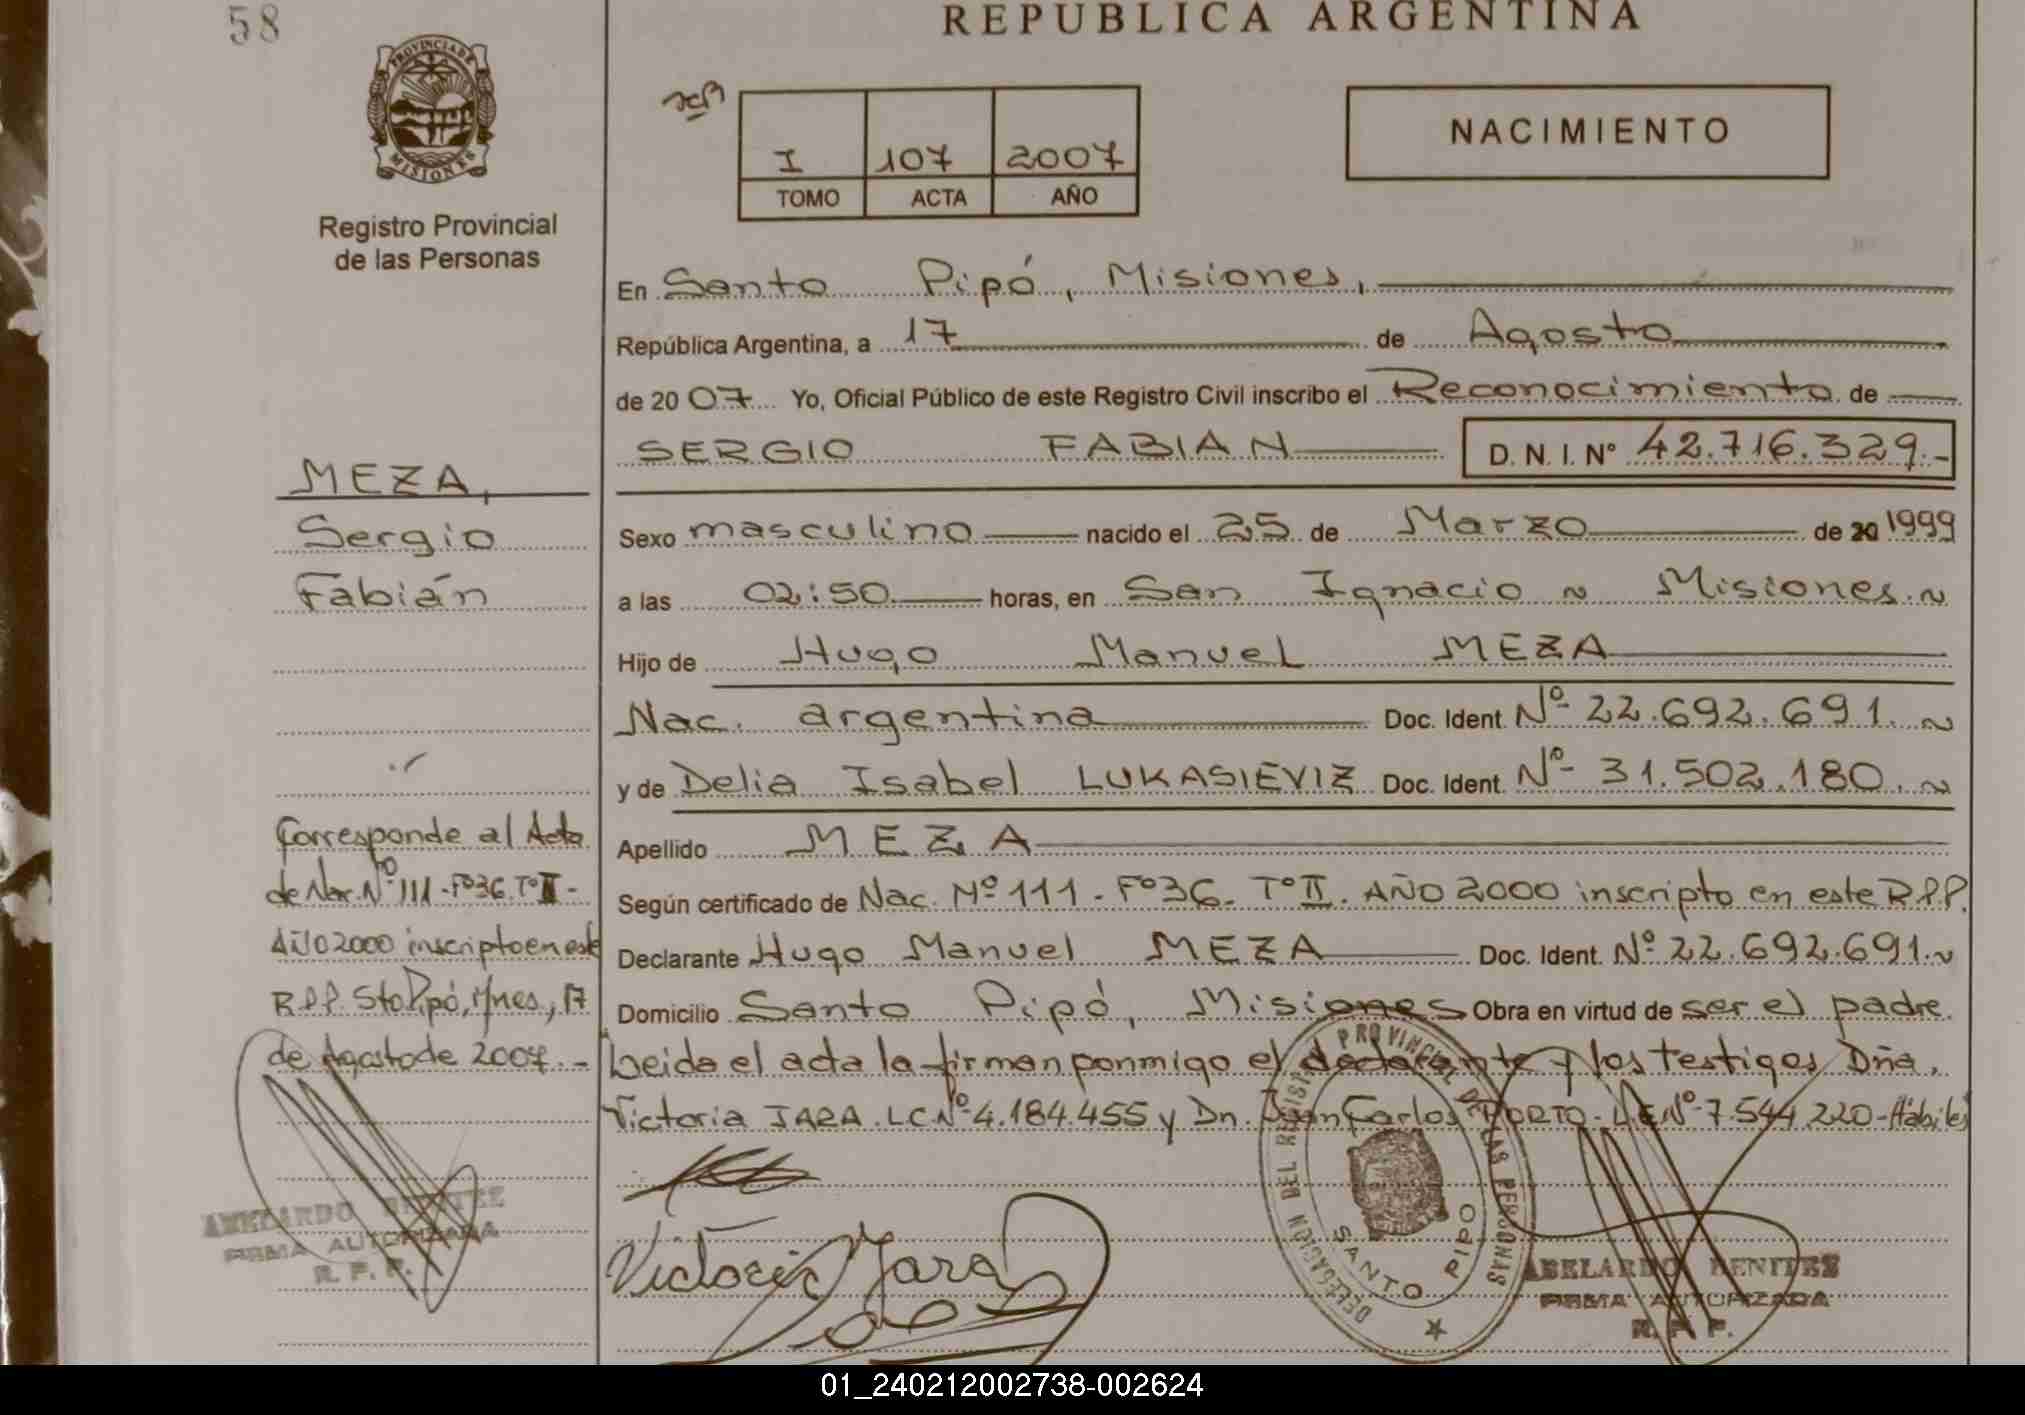 58
REPUBLICA ARGENTINA
PROVINCIA DE
MISIONES
Registro Provincial
de las Personas
I 107 2007
TOMO ACTA AÑO
NACIMIENTO
En Santo Pipó, Misiones,
República Argentina, a 17 de Agosto
de 20 07 Yo, Oficial Público de este Registro Civil inscribo el Reconocimiento de
SERGIO FABIAN D. N. I. Nº 42.716.329.-
MEZA,
Sergio
Fabián
Sexo masculino nacido el 25 de Marzo de 20 1999
a las 02:50 horas, en San Ignacio ~ Misiones.~
Hijo de Hugo Manuel MEZA
Nac. argentina Doc. Ident. Nº 22.692.691.~
y de Delia Isabel LUKASIEVIZ Doc. Ident. Nº 31.502.180.~
Apellido MEZA
Según certificado de Nac. Nº 111 - Fº36. Tº II. AÑO 2000 inscripto en este R.P.P.
Declarante Hugo Manuel MEZA Doc. Ident. Nº 22.692.691.~
Domicilio Santo Pipó, Misiones Obra en virtud de ser el padre.
Leida el acta la firman conmigo el declarante y los testigos Dña.
Victoria JARA. LC Nº 4.184.455 y Dn. Juan Carlos PORTO - LE Nº 7.544.220 - Hábiles
Corresponde al Acta
de Nac. Nº 111 - Fº36. Tº II -
AÑO 2000 inscripto en este
R.P.P. Sto Pipó, Mnes, 17
de Agosto de 2007.-
ABELARDO BENITEZ
FIRMA AUTORIZADA
R. P. P.
Victoria Jara
DELEGACION DEL REGISTRO PROVINCIAL DE LAS PERSONAS
SANTO PIPO
ABELARDO BENITEZ
FIRMA AUTORIZADA
R. P. P.
01_240212002738-002624